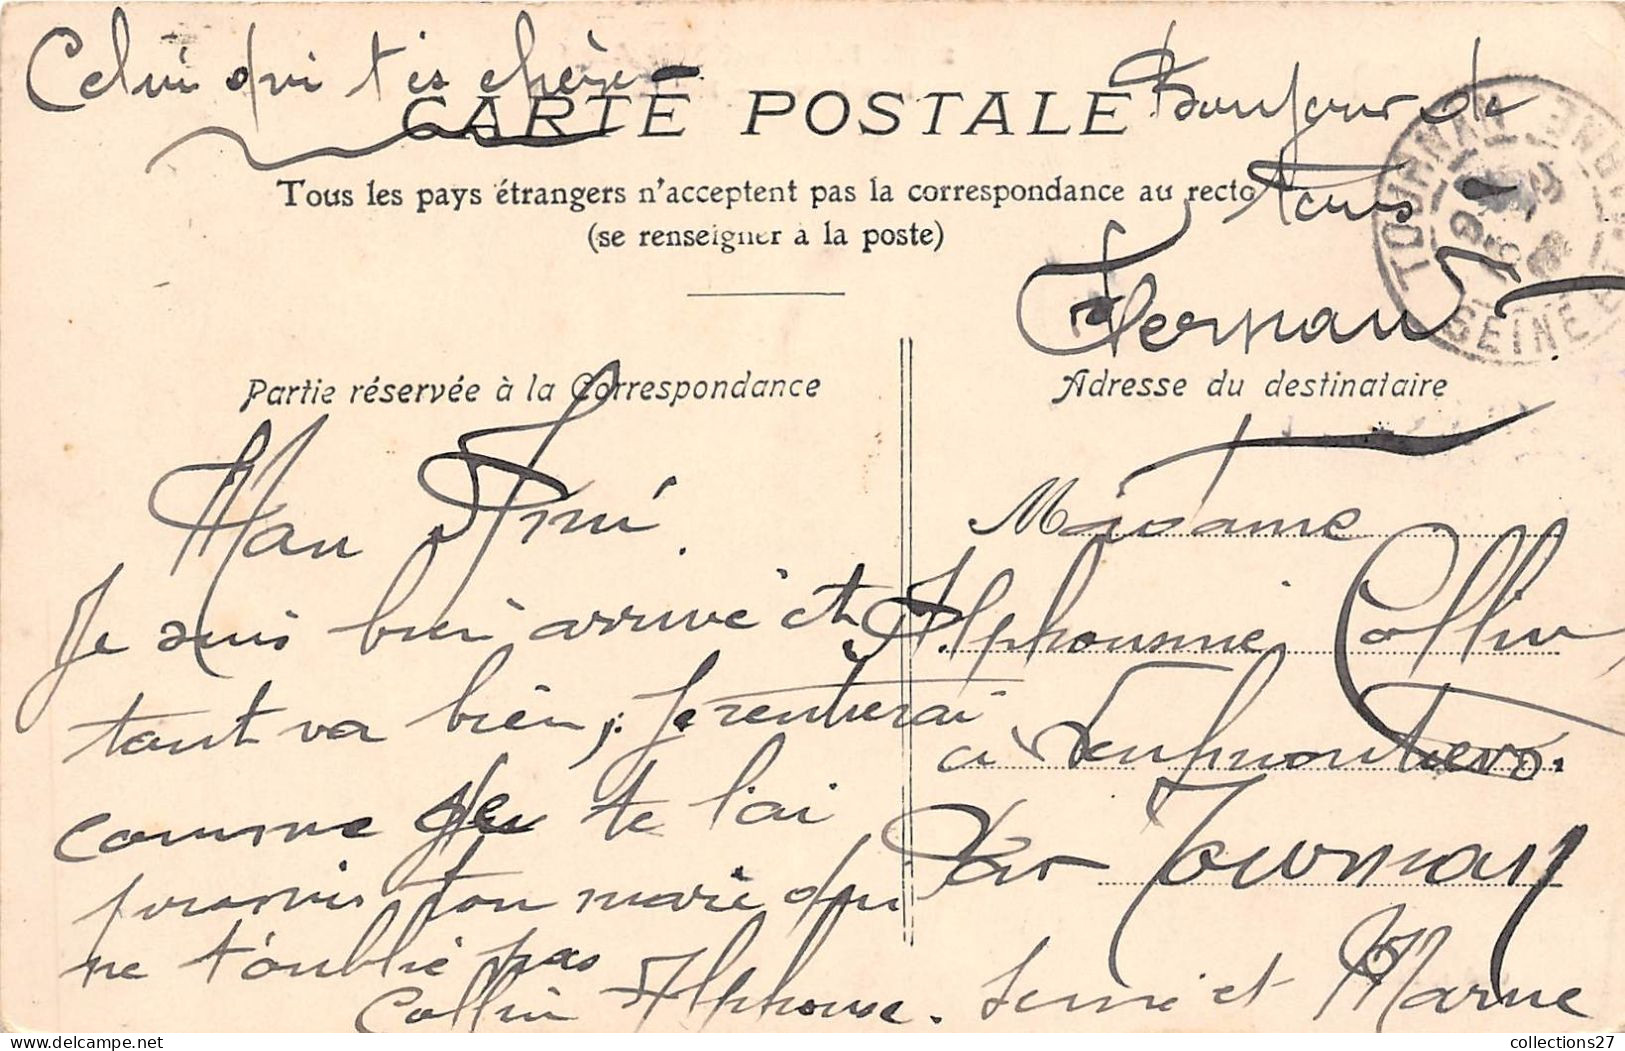 Celui qui t'es chère
Bonjour de
tous
Fernand
CARTE POSTALE
Tous les pays étrangers n'acceptent pas la correspondance au recto
(se renseigner à la poste)
TOURNAN
SEINE ET MARNE
Partie réservée à la Correspondance
Adresse du destinataire
Mon Aimé.
Je suis bien arrivé et
tout va bien, je rentrerai
comme je te l'ai
promis ton mari qui
ne t'oublie pas
Collin Alphonse.
Madame
Alphonsine Collin
à Neufmoutiers.
Par Tournan
Seine et Marne
collections27